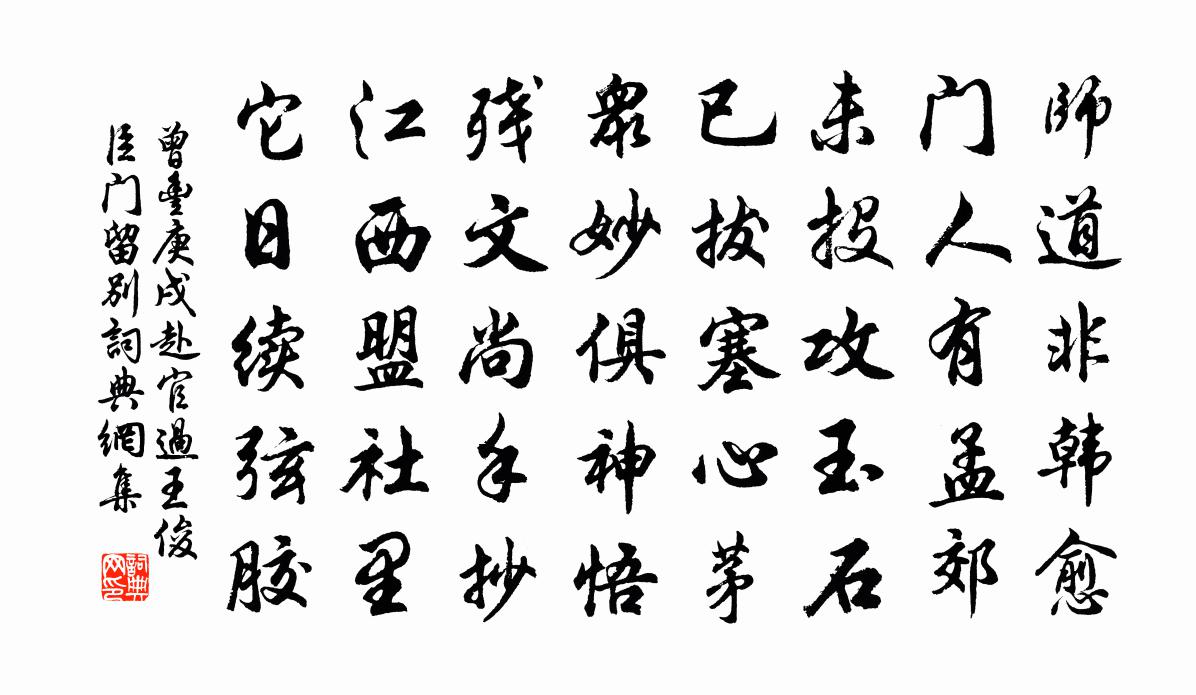 師道非韩愈
门人有孟郊
未投攻玉石
已拔塞心茅
眾妙俱神悟
残文尚手抄
江西盟社里
它日续弦胶
曾豊庚戌赴官過王俊
臣门留别詞典網集
詞典网印